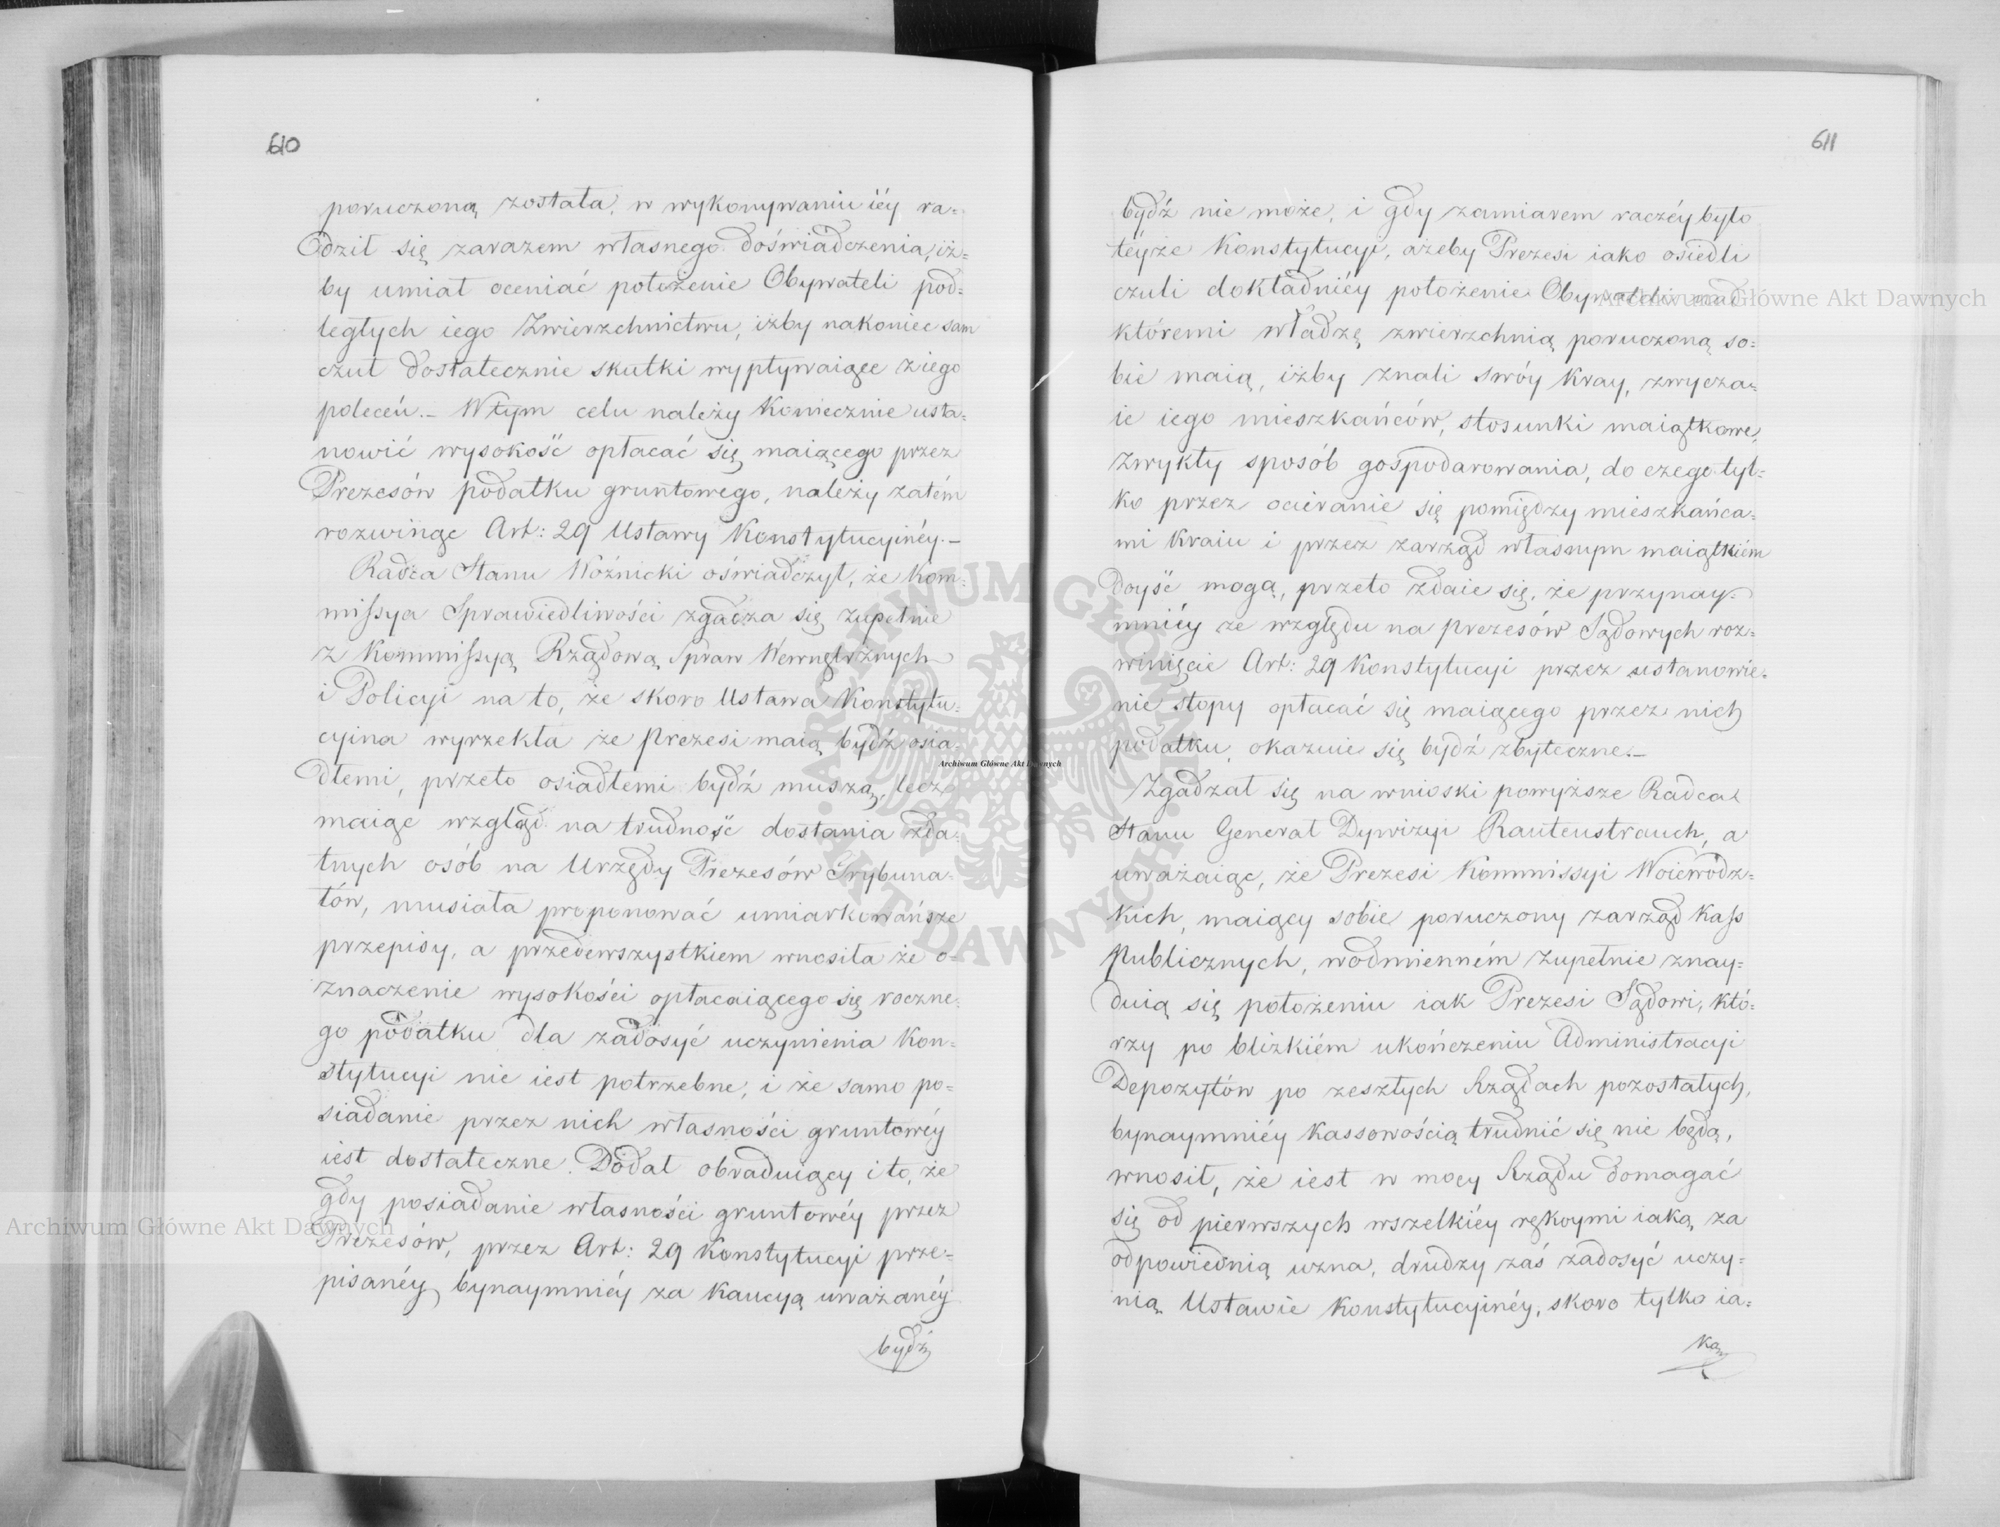 610
poruczoną została, w wykonywaniu iéy ra-
dził się zarazem własnego doświadczenia, iż=
by umiał oceniać położenie Obywateli pod=
ległych iego Zwierzchnictwu, iżby nakoniec sam
czuł dostatecznie skutki wypływaiące z iego
poleceń. — W tym celu należy koniecznie usta=
nowić wysokość opłacać się maiącego przez
Prezesów podatku gruntowego, należy zatém
rozwinąć Art: 29 Ustawy Konstytucyinéy. —
Radca Stanu Woźnicki oświadczył, że Kom=
missya Sprawiedliwości zgadza się zupełnie
z Kommissyą Rządową Spraw Wewnętrznych
i Policyi na to, że skoro Ustawa Konstytu=
cyina wyrzekła że Prezesi maią bydź osia=
dłemi, przeto osiadłemi bydź muszą, lecz
maiąc wzgląd na trudność dostania zda=
tnych osób na Urzędy Prezesów Trybuna=
łów, musiała proponować umiarkowańsze
przepisy, a przedewszystkiem wnosiła że o=
znaczenie wysokości opłacaiącego się roczne=
go podatku dla zadosyć uczynienia Kon=
stytucyi nie iest potrzebne, i że samo po=
siadanie przez nich własności gruntowéy
iest dostateczne. Dodał obraduiący i to, że
gdy posiadanie własności gruntowéy przez
Prezesów, przez Art: 29 Konstytucyi prze=
pisanéy, bynaymniéy za Kaucyą uważanéy
bydź
611
bydź nie może, i gdy zamiarem raczéy było
téyże Konstytucyi, ażeby Prezesi iako osiedli
czuli dokładniéy położenie Obywateli nad
któremi władzę zwierzchnią poruczoną so=
bie maią, iżby znali swóy Kray, zwycza=
ie iego mieszkańców, stosunki maiątkowe,
zwykły sposób gospodarowania, do czego tyl=
ko przez ocieranie się pomiędzy mieszkańca=
mi Kraiu i przez zarząd własnym maiątkiém
doyść mogą, przeto zdaie się, że przynay=
mniéy ze względu na prezesów Sądowych roz=
winięcie Art: 29 Konstytucyi przez ustanowie=
nie stopy opłacać się maiącego przez nich
podatku, okazuie się bydź zbyteczne. —
Zgadzał się na wnioski powyższe Radca
Stanu Generał Dywizyi Rautenstrauch, a
uważaiąc, że Prezesi Kommissyi Woiewódz=
kich, maiący sobie poruczony zarząd Kass
Publicznych, w odmienném zupełnie znay=
duią się położeniu iak Prezesi Sądowi, któ=
rzy po blizkiém ukończeniu Administracyi
Depozytów po zeszłych Rządach pozostałych,
bynaymniéy Kassowością trudnić się nie będą,
wnosił, że iest w mocy Rządu domagać
się od pierwszych wszelkiéy rękoymi iaką za
odpowiednią uzna, drudzy zaś zadosyć uczy=
nią Ustawie Konstytucyinéy, skoro tylko ia=
Archiwum Główne Akt Dawnych
Archiwum Główne Akt Dawnych
Archiwum Główne Akt Dawnych
ARCHIWUM GŁÓWNE AKT DAWNYCH